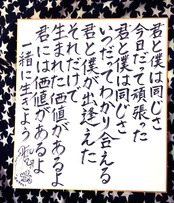 君と僕は同じさ
今日だって頑張った
君と僕は同じさ
いつだってわかり合える
君と僕が出逢えた
それだけで
生まれた価値があるよ
君には価値があるよ
一緒に生きよう